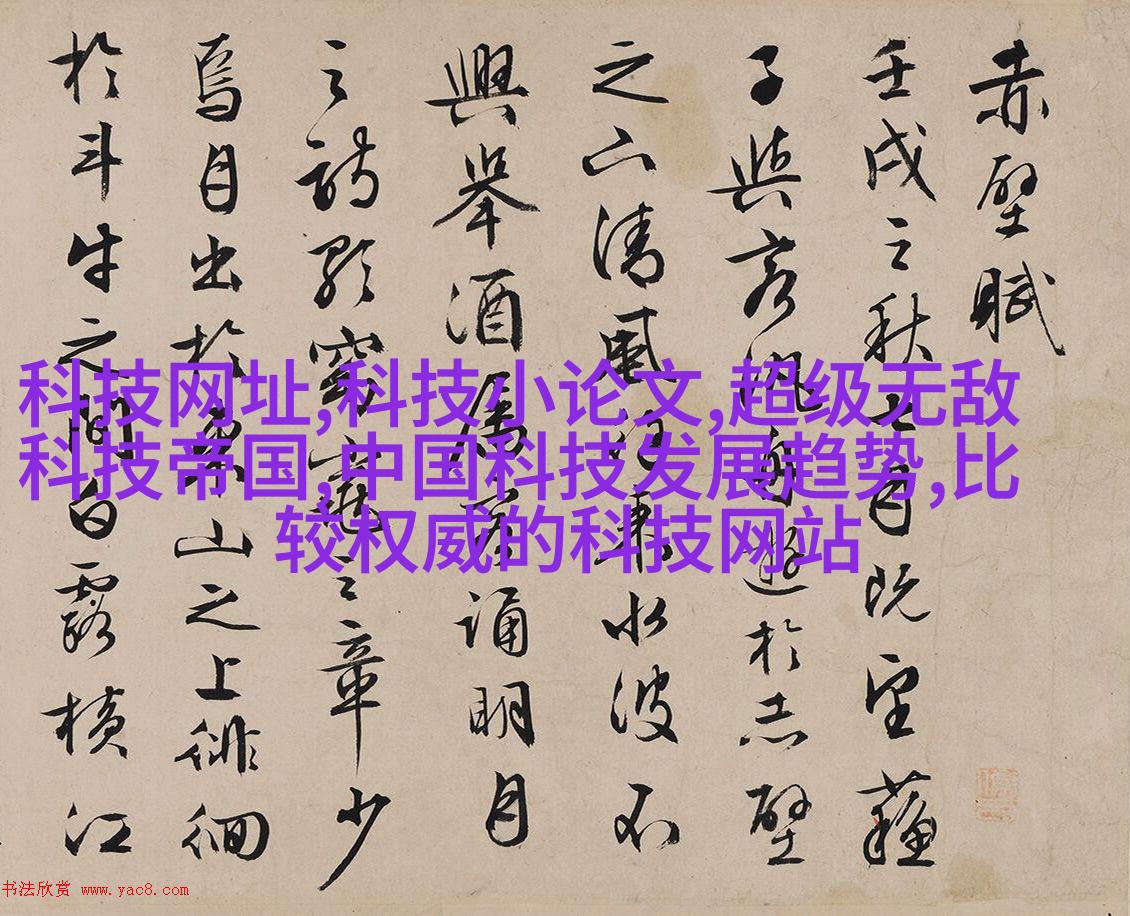 赤壁賦
壬戌之秋七月既望蘇
子與客泛舟遊於赤壁
之下清風徐來水波不
興舉酒屬客誦明月
之詩歌窈窕之章少
焉月出於東山之上徘徊
於斗牛之間白露橫江
科技网址,科技小论文,超级无敌
科技帝国,中国科技发展趋势,比
较权威的科技网站
书法欣赏 www.yac8.com